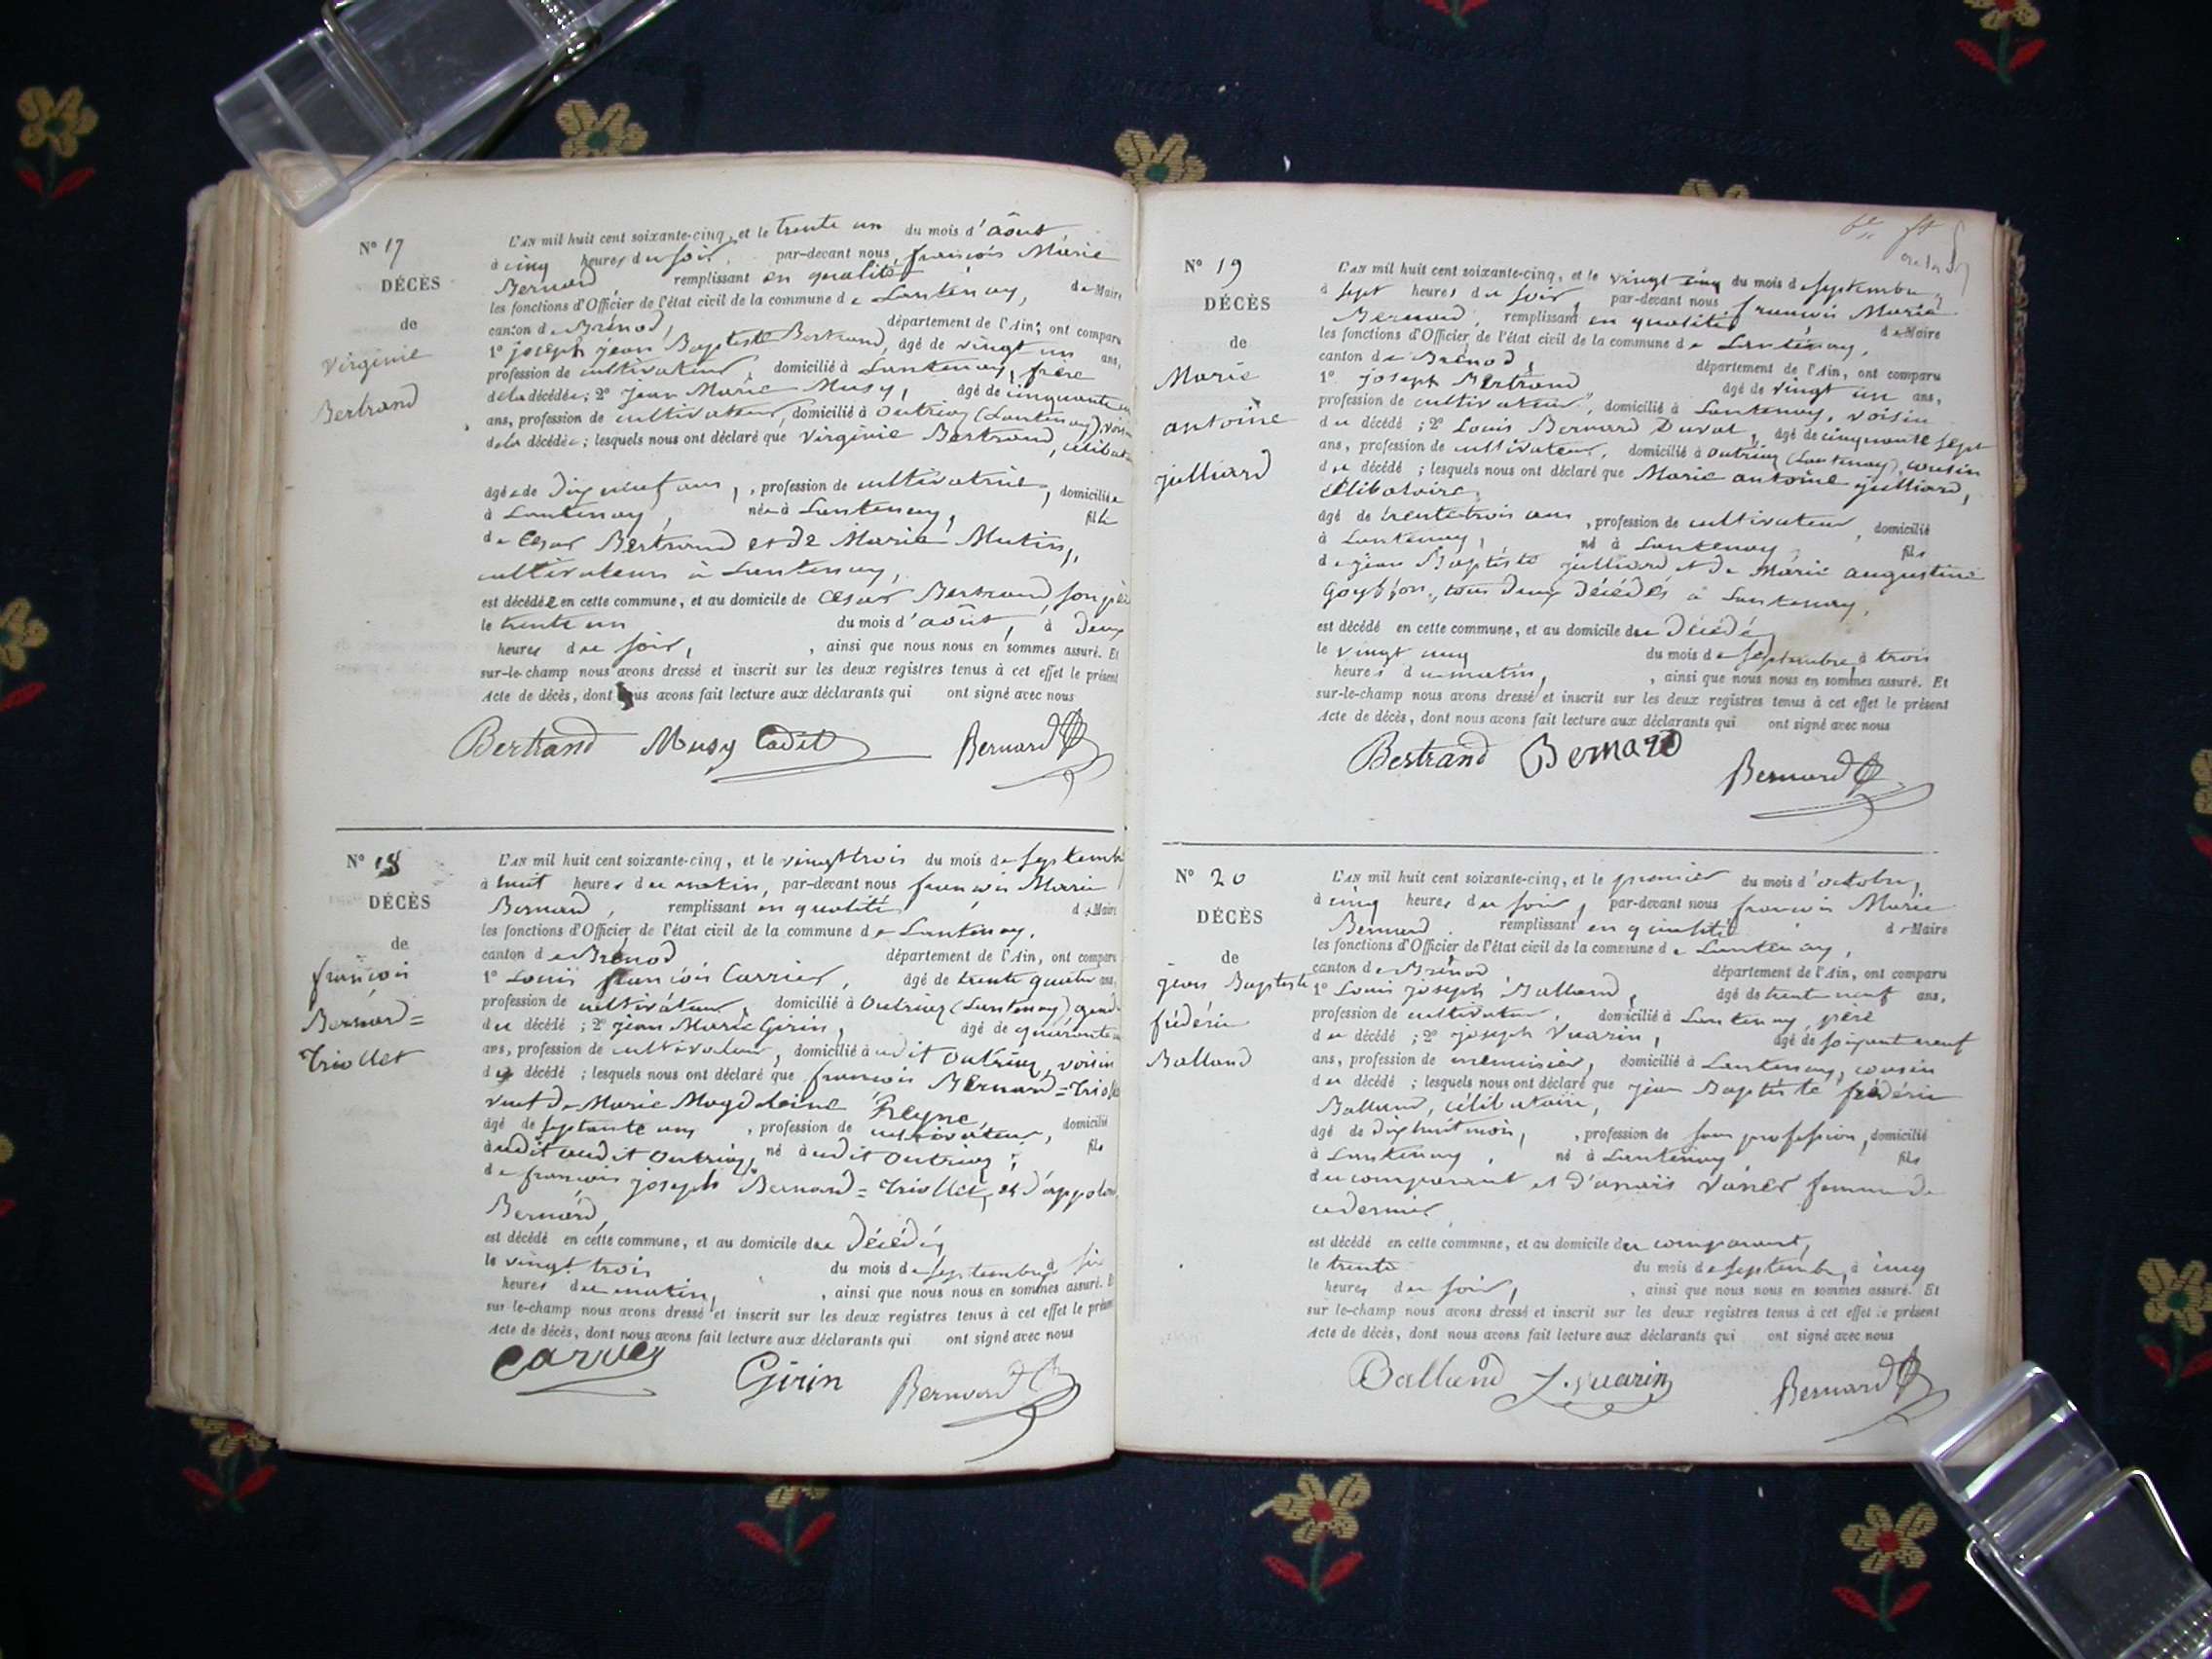 N° 17
DÉCÈS
de
Virginie
Bertrand
L'AN mil huit cent soixante-cinq, et le trente un du mois d'août
à cinq heures du soir, par-devant nous, françois Marie
Bernard remplissant en qualité de Maire
les fonctions d'Officier de l'état civil de la commune de Lantenay,
canton de Brénod, département de l'Ain, ont comparu
1° joseph jean Baptiste Bertrand, âgé de vingt un ans,
profession de cultivateur, domicilié à Lantenay, frère
de la décédée; 2° jean Marie Musy, âgé de cinquante
ans, profession de cultivateur, domicilié à Outriaz (Lantenay), voisin
de la décédée; lesquels nous ont déclaré que Virginie Bertrand,
âgée de dix neuf ans, profession de cultivatrice, domiciliée
à Lantenay, née à Lantenay, fille
de César Bertrand et de Marie Mutin,
cultivateurs à Lantenay,
est décédée en cette commune, et au domicile de César Bertrand, son père
le trente un du mois d'août, à deux
heures du soir, , ainsi que nous nous en sommes assuré. Et
sur-le-champ nous avons dressé et inscrit sur les deux registres tenus à cet effet le présent
Acte de décès, dont nous avons fait lecture aux déclarants qui ont signé avec nous
Bertrand Musy Cadet Bernard
N° 18
DÉCÈS
de
françois
Bernard=
Triollet
L'AN mil huit cent soixante-cinq, et le vingt trois du mois de septembre
à huit heures du matin, par-devant nous françois Marie
Bernard, remplissant en qualité de Maire
les fonctions d'Officier de l'état civil de la commune de Lantenay,
canton de Brénod département de l'Ain, ont comparu
1° Louis françois Carrier, âgé de trente quatre ans,
profession de cultivateur, domicilié à Outriaz (Lantenay)
du décédé; 2° jean Marie Girin, âgé de quarante
ans, profession de cultivateur, domicilié audit Outriaz, voisin
du décédé; lesquels nous ont déclaré que françois Bernard=Triollet
veuf de Marie Magdeleine Reyne,
âgé de septante cinq, profession de cultivateur, domicilié
audit audit Outriaz, né audit Outriaz, fils
de françois joseph Bernard=Triollet, et d'
Bernard,
est décédé en cette commune, et au domicile du décédé,
le vingt trois du mois de septembre, à six
heures du matin, , ainsi que nous nous en sommes assuré. Et
sur le-champ nous avons dressé et inscrit sur les deux registres tenus à cet effet le présent
Acte de décès, dont nous avons fait lecture aux déclarants qui ont signé avec nous
Carrier Girin Bernard
N° 19
DÉCÈS
de
Marie
antoine
julliard
L'AN mil huit cent soixante-cinq, et le vingt cinq du mois de septembre,
à sept heures du soir, par-devant nous françois Marie
Bernard, remplissant en qualité de Maire
les fonctions d'Officier de l'état civil de la commune de Lantenay,
canton de Brénod, département de l'Ain, ont comparu
1° joseph Bertrand âgé de vingt un ans,
profession de cultivateur, domicilié à Lantenay, voisin
du décédé; 2° Louis Bernard Duvat, âgé de cinquante sept
ans, profession de cultivateur, domicilié à Outriaz (Lantenay), cousin
du décédé; lesquels nous ont déclaré que Marie antoine julliard,
célibataire,
âgé de trente trois ans, profession de cultivateur, domicilié
à Lantenay, né à Lantenay, fils
de jean Baptiste julliard et de Marie augustine
tous deux décédés à Lantenay,
est décédé en cette commune, et au domicile du décédé,
le vingt cinq du mois de septembre, à trois
heures du matin, , ainsi que nous nous en sommes assuré. Et
sur-le-champ nous avons dressé et inscrit sur les deux registres tenus à cet effet le présent
Acte de décès, dont nous avons fait lecture aux déclarants qui ont signé avec nous
Bertrand Bernard Bernard
N° 20
DÉCÈS
de
jean Baptiste
frédéric
Balland
L'AN mil huit cent soixante-cinq, et le premier du mois d'octobre,
à cinq heures du soir, par-devant nous françois Marie
Bernard remplissant en qualité de Maire
les fonctions d'Officier de l'état civil de la commune de Lantenay,
canton de Brénod, département de l'Ain, ont comparu
1° Louis joseph Balland, âgé de trente neuf ans,
profession de cultivateur, domicilié à Lantenay, père
du décédé; 2° joseph Vuarin, âgé de soixante neuf
ans, profession de menuisier, domicilié à Lantenay, cousin
du décédé; lesquels nous ont déclaré que jean Baptiste frédéric
Balland, célibataire,
âgé de dix huit mois, , profession de sans profession, domicilié
à Lantenay, né à Lantenay fils
du comparant et d'anaïs femme de
ce dernier
est décédé en cette commune, et au domicile du comparant,
le trente du mois de septembre, à cinq
heures du soir, , ainsi que nous nous en sommes assuré. Et
sur le-champ nous avons dressé et inscrit sur les deux registres tenus à cet effet le présent
Acte de décès, dont nous avons fait lecture aux déclarants qui ont signé avec nous
Balland J. Vuarin Bernard